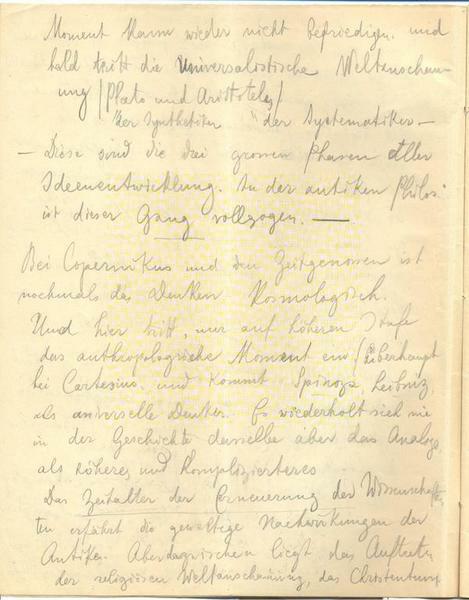 Moment kann wieder nicht befriedigen. und
bald tritt die Universalistische Weltanschau-
ung (Plato und Aristoteles)
"der Synthetiker" der Systematiker—
— Diese sind die drei grossen Phasen aller
Ideenentwicklung. In der antiken Philos.
ist dieser Gang vollzogen. —
Bei Copernikus und den Zeitgenossen ist
nochmals das Denken Kosmologisch.
Und hier tritt, nur auf höheren Stufe
das anthropologische Moment ein (überhaupt
bei Cartesius. und kommt Spinoza, Leibniz,
als universelle Denker. Es wiederholt sich nie
in der Geschichte dasselbe aber das Analoge,
als höheres und Komplizierteres
Das Zeitalter der Erneuerung der Wissenschaf-
ten erfährt die gewaltige Nachwirkungen der
Antike. Aber dazwischen liegt das Auftreten
der religiösen Weltanschauung, das Christentum